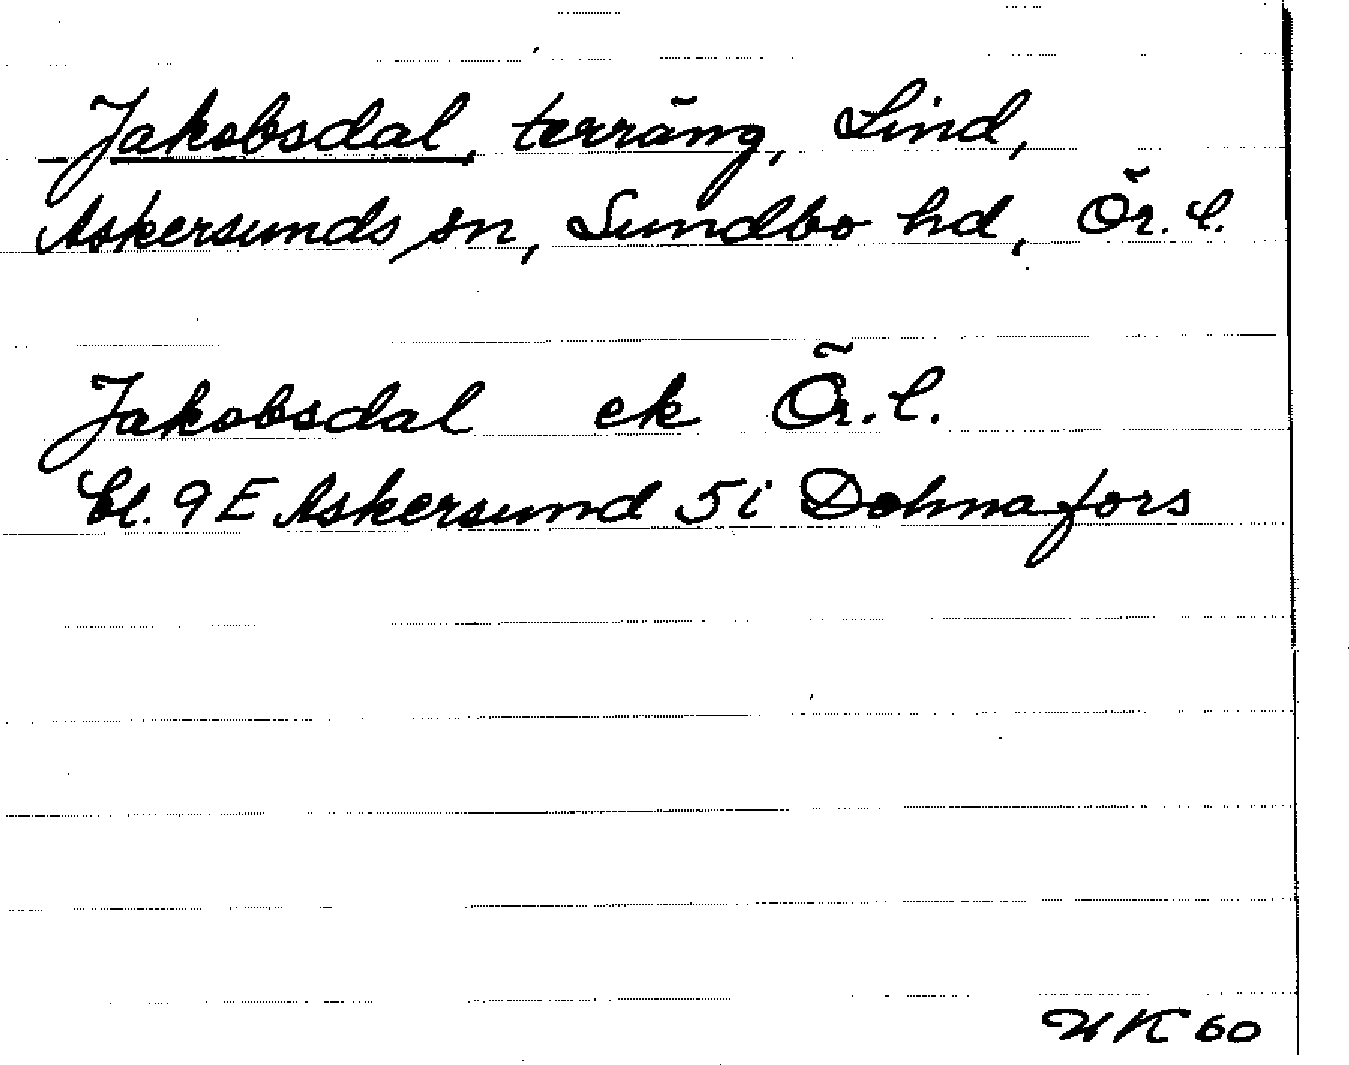 Jakobsdal, terräng, Lind,
Askersunds sn, Sundbo hd, Ör. l.
Jakobsdal ek Ör. l.
Bl. 9 E Askersund 5 i Dohnafors
UK 60